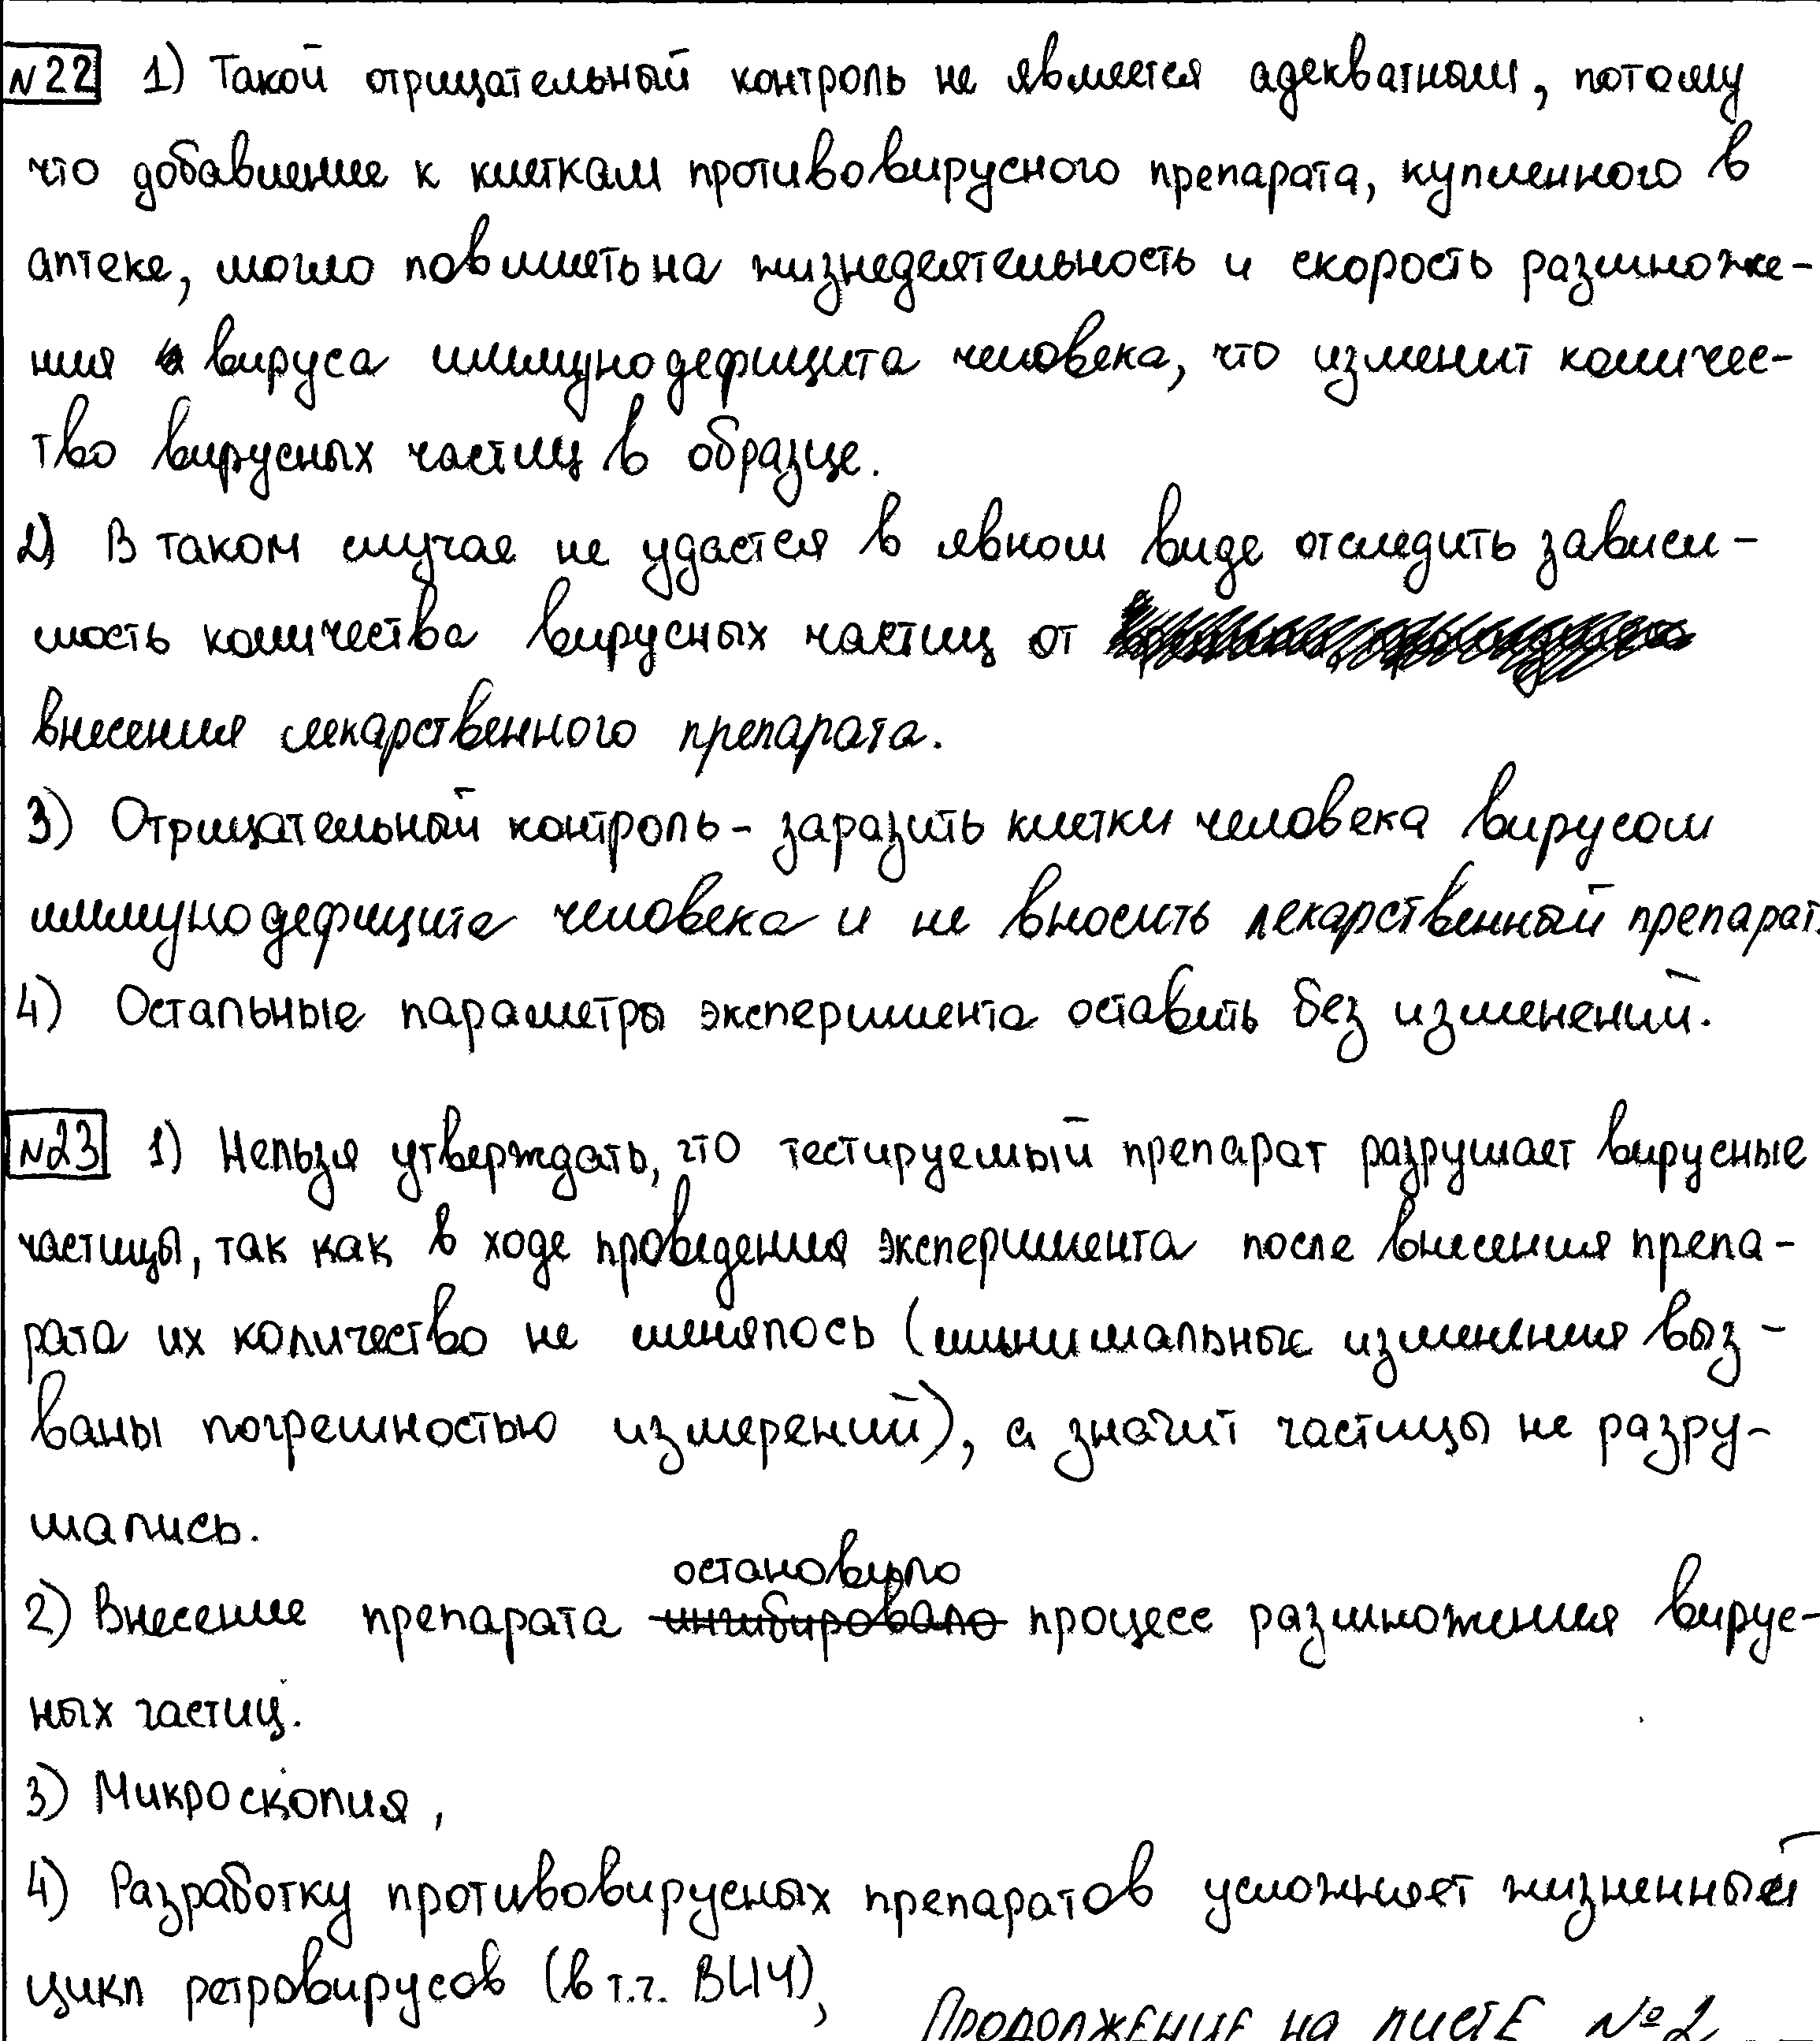 №22 1) Такой отрицательный контроль не является адекватным, потому
что добавление к клеткам противовирусного препарата, купленного в
аптеке, могло повлиять на жизнедеятельность и скорость размноже-
ния вируса иммунодефицита человека, что изменит количес-
тво вирусных частиц в образце.
2) В таком случае не удастся в явном виде отследить зависи-
мость количества вирусных частиц от
внесения лекарственного препарата.
3) Отрицательный контроль - заразить клетки человека вирусом
иммунодефицита человека и не вносить лекарственный препарат.
4) Остальные параметры эксперимента оставить без изменений.
№23 1) Нельзя утверждать, что тестируемый препарат разрушает вирусные
частицы, так как в ходе проведения эксперимента после внесения препа-
рата их количество не менялось (минимальные изменения выз-
ваны погрешностью измерений), а значит частицы не разру-
шались.
остановило
2) Внесение препарата ингибировало процесс размножения вирус-
ных частиц.
3) Микроскопия,
4) Разработку противовирусных препаратов усложняет жизненный
цикл ретровирусов (в т.ч. ВИЧ),
Продолжение на листе №2